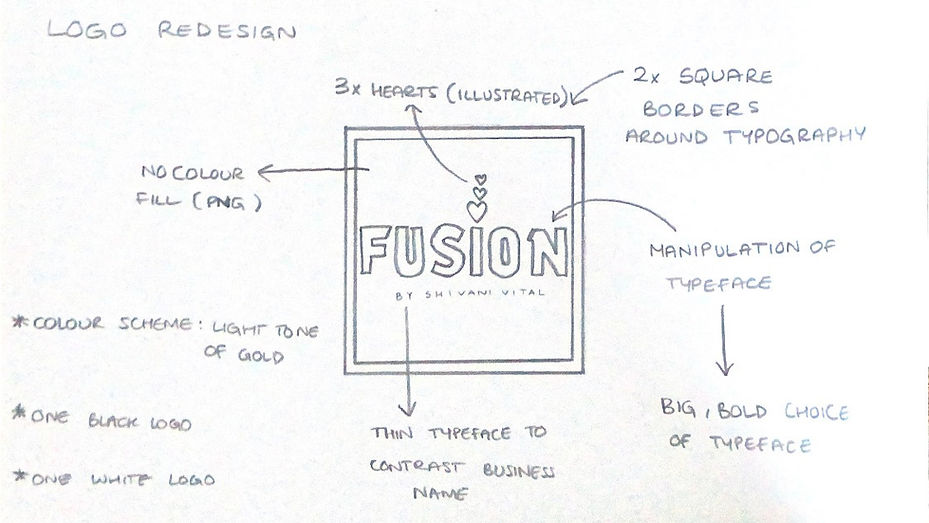 LOGO REDESIGN
3x HEARTS (ILLUSTRATED)
2x SQUARE
BORDERS
AROUND TYPOGRAPHY
NO COLOUR
FILL (PNG)
FUSION
BY SHIVANI VITAL
MANIPULATION OF
TYPEFACE
*COLOUR SCHEME: LIGHT TONE
OF GOLD
*ONE BLACK LOGO
*ONE WHITE LOGO
THIN TYPEFACE TO
CONTRAST BUSINESS
NAME
BIG, BOLD CHOICE
OF TYPEFACE